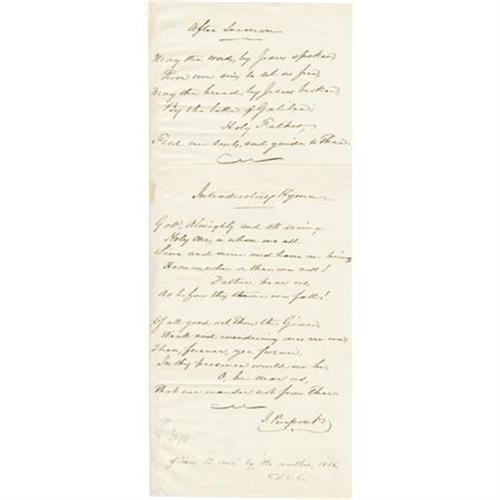 After Sermon
May the words, by Jesus spoken,
From our sins to set us free,
May the bread, by Jesus broken
By the lake of Galilee,
Holy Father,
Feed our souls, and guide to Thee.
Introductory Hymn
God, Almighty and all seeing,
Holy One, in whom we all
Live and move and have our being
Hear us, when on thee we call!
Father hear us,
As before thy throne we fall!
Of all good art Thou the Giver;
Weak and wandering ones are we;
Then, forever, yea forever,
In thy presence would we be.
O, be near us,
That we wander not from Thee.
J. Pierpont
given to me by the author,